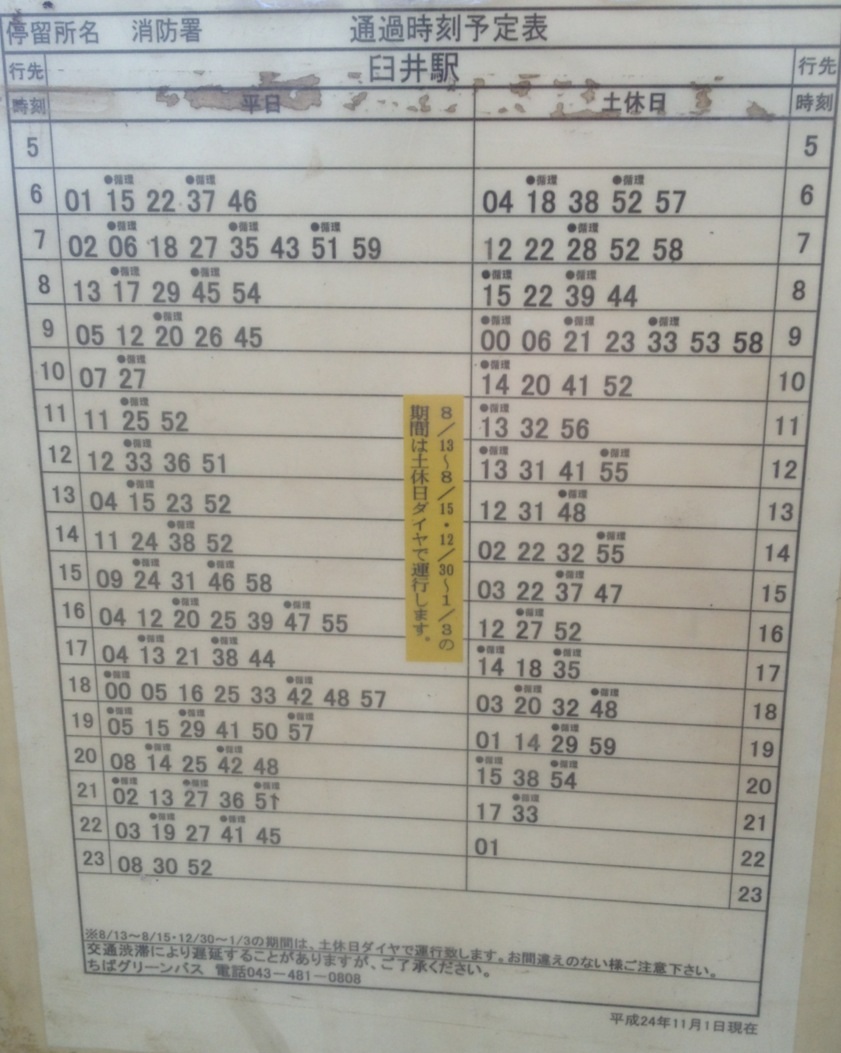 停留所名 消防署 通過時刻予定表
行先 臼井駅 行先
時刻 平日 土休日 時刻
5 5
●循環 ●循環 ●循環 ●循環
6 01 15 22 37 46 04 18 38 52 57 6
●循環 ●循環 ●循環 ●循環
7 02 06 18 27 35 43 51 59 12 22 28 52 58 7
●循環 ●循環 ●循環 ●循環
8 13 17 29 45 54 15 22 39 44 8
●循環 ●循環 ●循環 ●循環
9 05 12 20 26 45 00 06 21 23 33 53 58 9
●循環 ●循環
10 07 27 14 20 41 52 10
●循環 ●循環
11 11 25 52 13 32 56 11
●循環 ●循環 ●循環
12 12 33 36 51 13 31 41 55 12
●循環 ●循環
13 04 15 23 52 12 31 48 13
●循環 ●循環
14 11 24 38 52 02 22 32 55 14
●循環 ●循環 ●循環
15 09 24 31 46 58 03 22 37 47 15
●循環 ●循環 ●循環
16 04 12 20 25 39 47 55 12 27 52 16
●循環 ●循環 ●循環 ●循環
17 04 13 21 38 44 14 18 35 17
●循環 ●循環 ●循環 ●循環
18 00 05 16 25 33 42 48 57 03 20 32 48 18
●循環 ●循環 ●循環 ●循環
19 05 15 29 41 50 57 01 14 29 59 19
●循環 ●循環 ●循環 ●循環
20 08 14 25 42 48 15 38 54 20
●循環 ●循環 ●循環 ●循環
21 02 13 27 36 51↑ 17 33 21
●循環 ●循環
22 03 19 27 41 45 01 22
23 08 30 52 23
8/13〜8/15・12/30〜1/3の
期間は土休日ダイヤで運行します。
※8/13〜8/15・12/30〜1/3の期間は、土休日ダイヤで運行致します。お間違えのない様ご注意下さい。
交通渋滞により遅延することがありますが、ご了承ください。
ちばグリーンバス 電話043−481−0808
平成24年11月1日現在